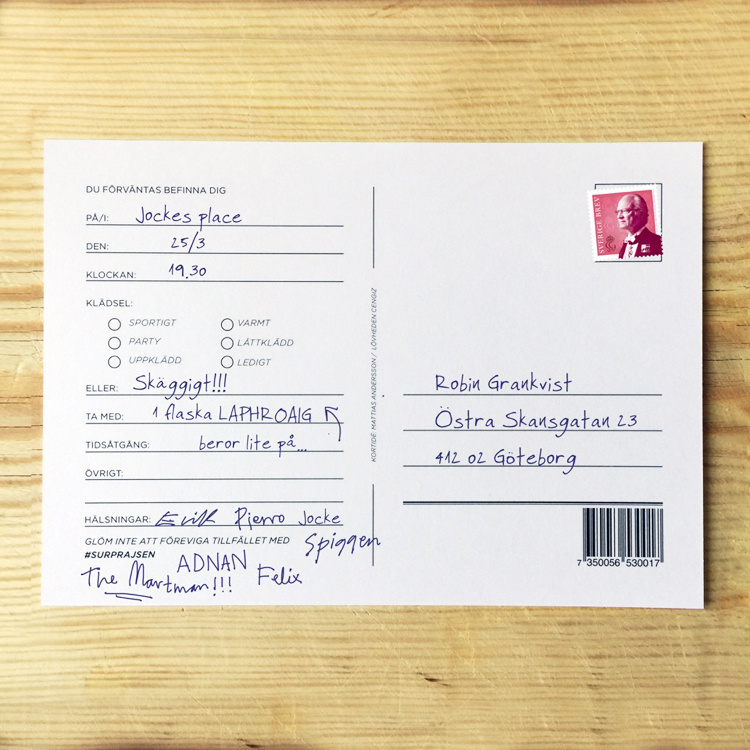 DU FÖRVÄNTAS BEFINNA DIG
PÅ/I: Jockes place
DEN: 25/3
KLOCKAN: 19.30
KLÄDSEL:
SPORTIGT VARMT
PARTY LÄTTKLÄDD
UPPKLÄDD LEDIGT
ELLER: Skäggigt!!!
TA MED: 1 flaska LAPHROAIG
TIDSÅTGÅNG: beror lite på...
ÖVRIGT:
HÄLSNINGAR: Erik Pierro Jocke
GLÖM INTE ATT FÖREVIGA TILLFÄLLET MED Spiggen
#SURPRAJSEN
ADNAN
The Martman!!! Felix
KORTIDE: MATTIAS ANDERSSON / LÖVHEDEN CENGIZ
SVERIGE BREV
Robin Grankvist
Östra Skansgatan 23
412 02 Göteborg
7 350056 530017